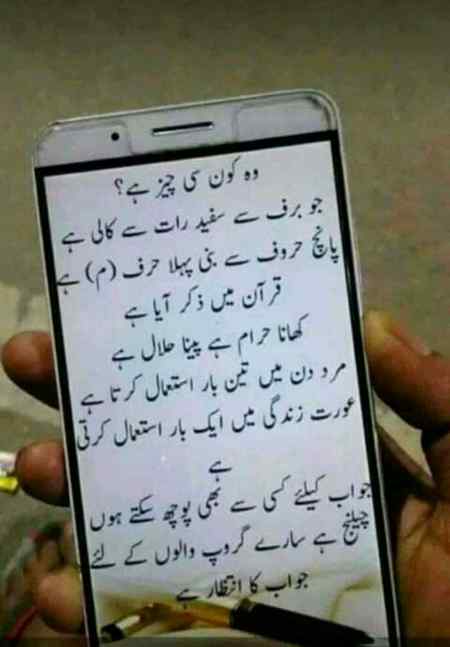 وہ کون سی چیز ہے؟
جو برف سے سفید رات سے کالی ہے
پانچ حروف سے بنی پہلا حرف (م) ہے
قرآن میں ذکر آیا ہے
کھانا حرام ہے پینا حلال ہے
مرد دن میں تین بار استعمال کرتا ہے
عورت زندگی میں ایک بار استعمال کرتی
ہے
جواب کیلئے کسی سے بھی پوچھ سکتے ہوں
چیلنج ہے سارے گروپ والوں کے لئے
جواب کا انتظار ہے